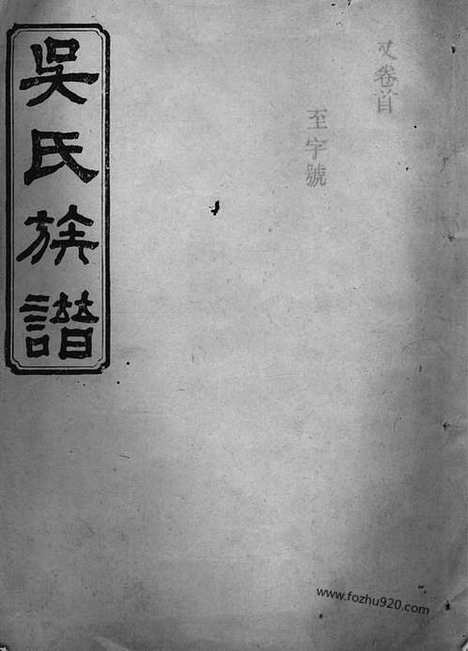 卷首
至字號
吳氏族譜
www.fozhu920.com